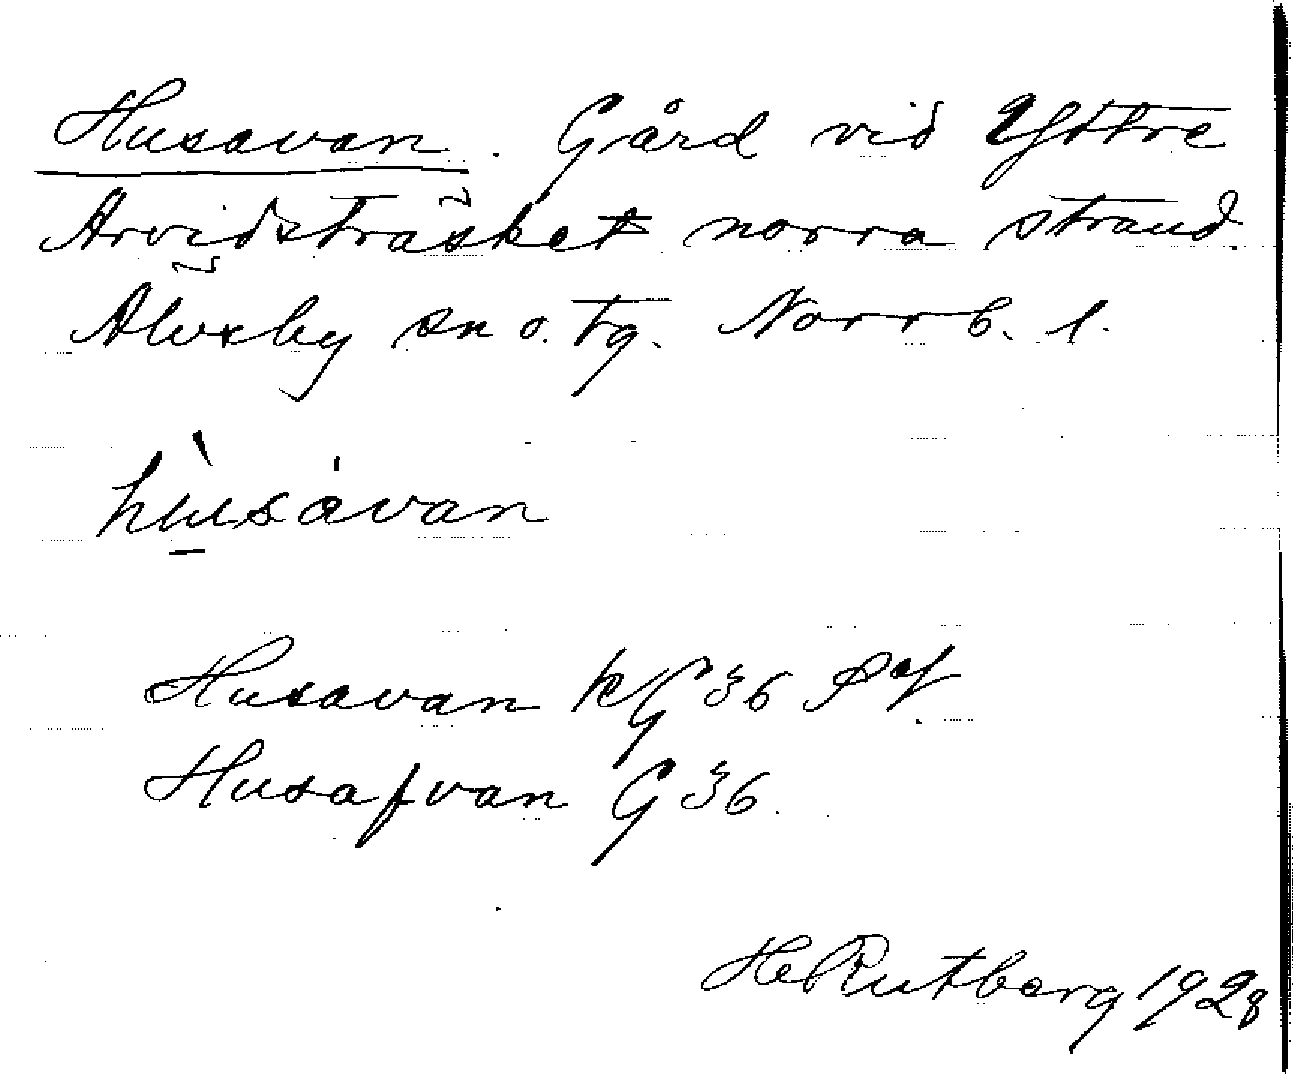 Husavan. Gård vid Yttre
Arvidsträsket norra strand
Älvsby sn o. tg. Norrb. l.
hùsávan
Husavan kG 36
Husafvan G 36.
HeRutberg 1928